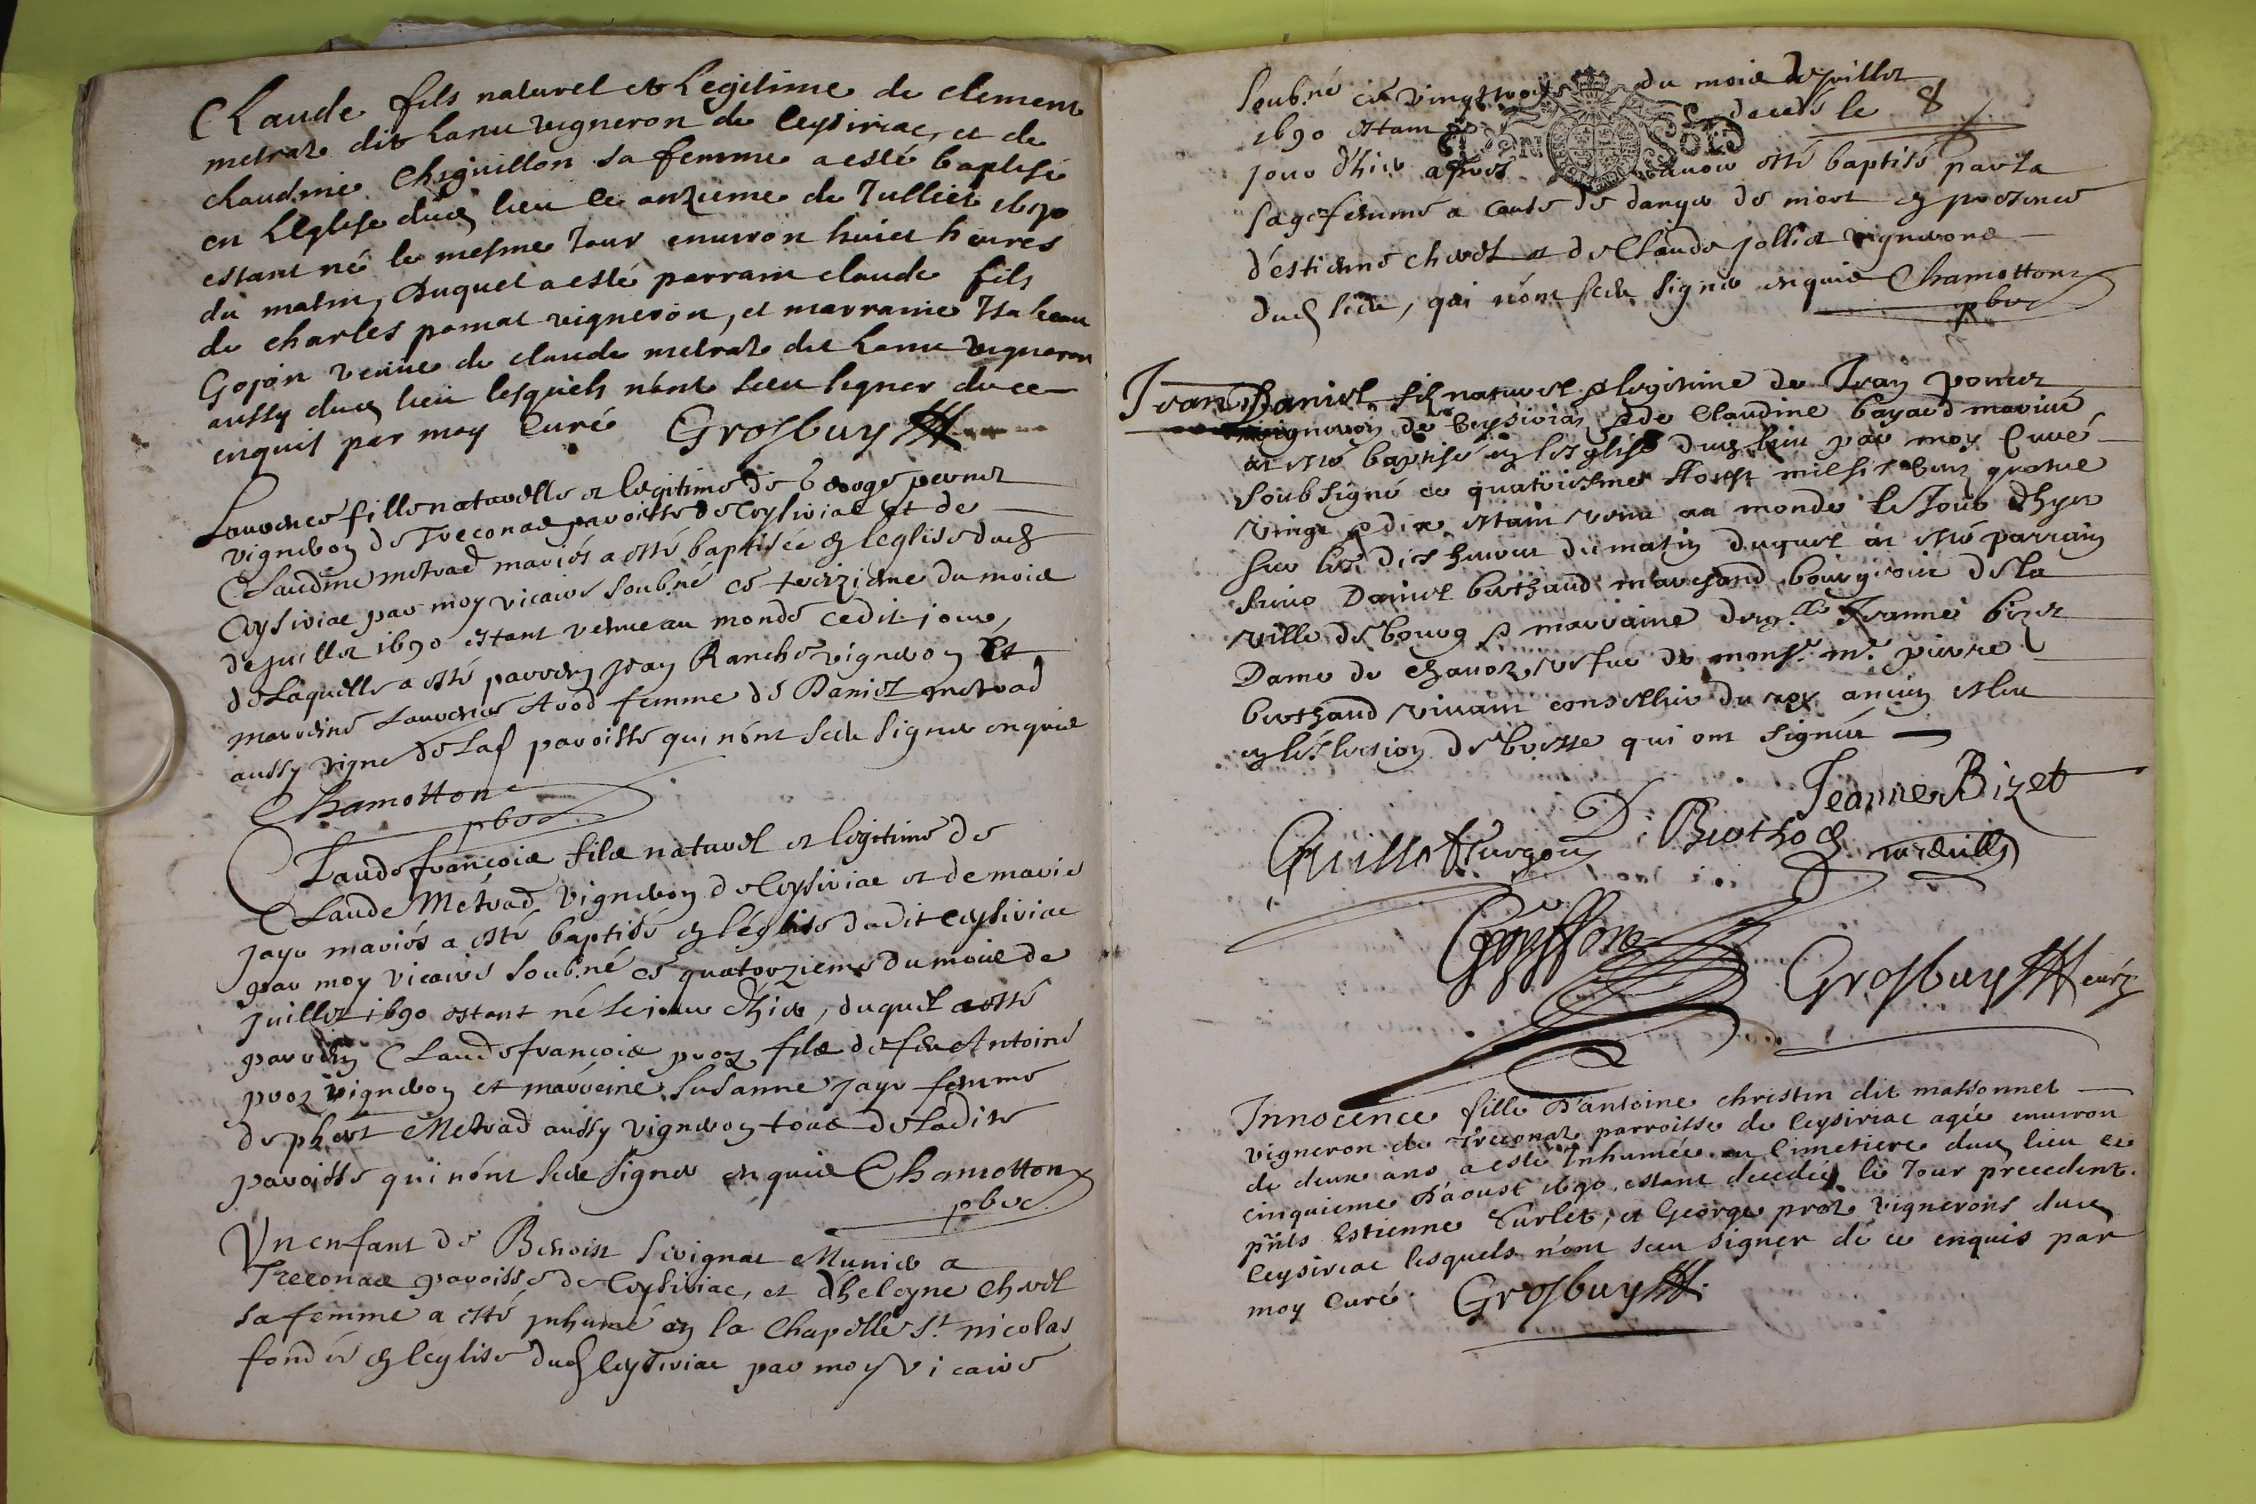 Claude fils naturel et Legitime de clement
metraz dit Lanu vigneron de Ceysiriac, et de
claudine Chiguillon sa femme a esté baptisé
en LEglise dud lieu ce onzieme de Julliet 1690
estant né le mesme Jour environ huict heures
du matin, Duquel a esté parrain claude fils
de charles pomat vigneron, et marraine Isabeau
Gojon veuve de claude metraz dit Lanu vigneron
aussy dud lieu lesquels n'ont sceu signer de ce
enquis par moy Curé Grosbuy
Laurence fille naturelle et legitime de George perret
vigneron de Treconas paroisse de Ceysiriac et de
Claudine metrad mariés a esté baptisée en l'eglise dud
Ceysiriac par moy vicaire soub.né ce treizieme du mois
de juillet 1690 estant venue au monde cedit jour,
de Laquelle a esté parrein jean Ranche vigneron Et
marreine Laurence Avod femme de Daniel metrad
aussy vigne de Lad paroisse qui n'ont sceu signer enquis
Chamotton
pbre
Claude françois fils naturel et legitime de
Claude Metrad vigneron de Ceysiriac et de marie
jayr mariés a esté baptisé en l'église dudit Ceysiriac
par moy vicaire soub.né ce quatorzieme du mois de
juillet 1690 estant né le jour d'hier, duquel a esté
parrein Claude françois proz fils de feu Antoine
proz vigneron et marreine Susanne jayr femme
de phert Metrad aussy vigneron tous de Ladite
paroisse qui n'ont sceu signer enquis Chamotton
pbre
Un enfant de Benoist Sevignat Munier a
Treconas paroisse de Ceysiriac, et d'heleyne Chrel
sa femme a esté inhumé en la Chapelle St nicolas
fondée en l'eglise dud Ceysiriac par moy vicaire
soub.né ce vingt trois du mois de juillet
1690 estant decedé le 8
jour d'hier apres avoir esté baptisé par la
sagefemme a cause de danger de mort en presence
d'estienne chrel et de Claude jolliet vignerons
dud lieu, qui n'ont sceu signer enquis Chamotton
pbre
Jean Daniel fils naturel et legitime de Jean perret
vigneron de Ceysiria, et de Claudine bayard mariés
at esté baptisé en lesglise dud lieu par moy Curé
soubsigné ce quatriesme Aoust mil six cent quatre
vingt et dix estant venu au monde le Jour d'hyer
sur les dix heures du matin duquel at esté parrain
sieur Daniel berthaud marchand bourgeois de la
ville de bourg et marraine dem.lle Jeanne bizet
Dame de chavoz vefue de mons.r m.r pierre
berthaud vivant conseiller du roy ancien esleu
en leslection de bresse qui ont signés
Jeanne Bizet
D. Berthod
Griffon
Grosbuy curé
Innocence fille d'antoine christin dit massonnet
vigneron de Treconaz parroisse de Ceysiriac agée environ
de deux ans a esté Inhumée au Cimetiere dud lieu ce
cinquieme d'aoust 1690, estant decedée le Jour precedent.
pnts Estienne Surlet, et George proz vignerons dud
Ceysiriac lesquels n'ont sceu signer de ce enquis par
moy Curé. Grosbuy